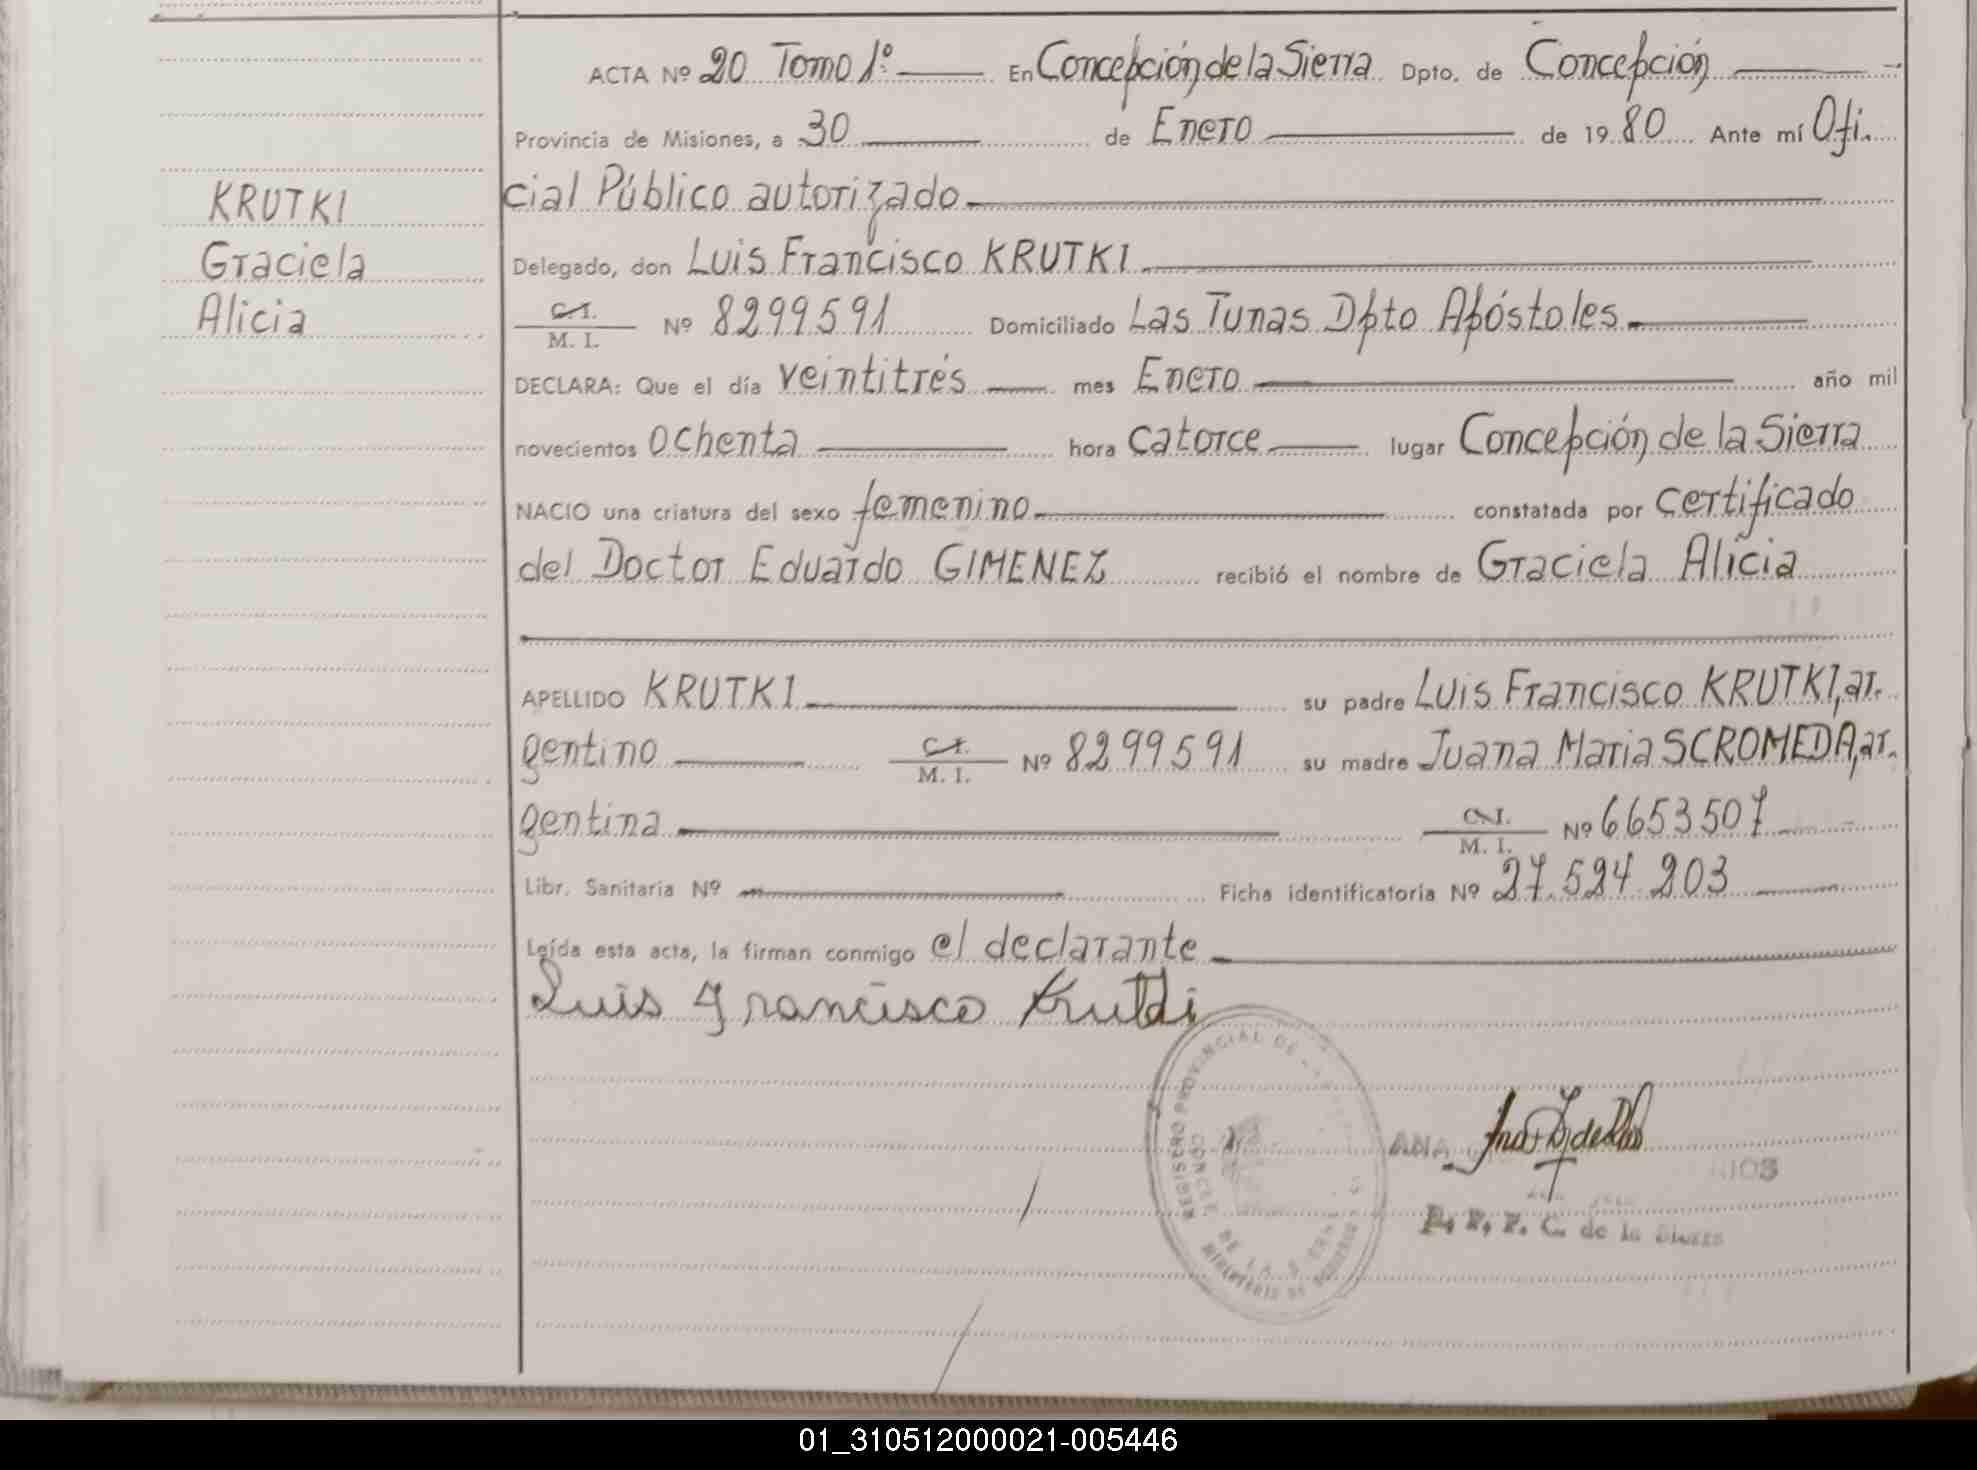 ACTA Nº 20 Tomo 1º En Concepción de la Sierra Dpto. de Concepción
Provincia de Misiones, a 30 de Enero de 1980 Ante mí Ofi.
KRUTKI
cial Público autorizado
Graciela
Delegado, don Luis Francisco KRUTKI
Alicia
C.I. / M. I. Nº 8299591 Domiciliado Las Tunas Dpto Apóstoles
DECLARA: Que el día veintitrés mes Enero año mil
novecientos ochenta hora catorce lugar Concepción de la Sierra
NACIO una criatura del sexo femenino constatada por certificado
del Doctor Eduardo GIMENEZ recibió el nombre de Graciela Alicia
APELLIDO KRUTKI su padre Luis Francisco KRUTKI, ar.
gentino C.I. / M. I. Nº 8299591 su madre Juana Maria SCROMEDA, ar.
gentina C.I. / M. I. Nº 6653507
Libr. Sanitaria Nº Ficha identificatoria Nº 27.524.203
Leída esta acta, la firman conmigo el declarante
Luis Francisco Krutki
REGISTRO PROVINCIAL DE
ANA
C. de la Sierra
MINISTERIO DE GOBIERNO
01_310512000021-005446